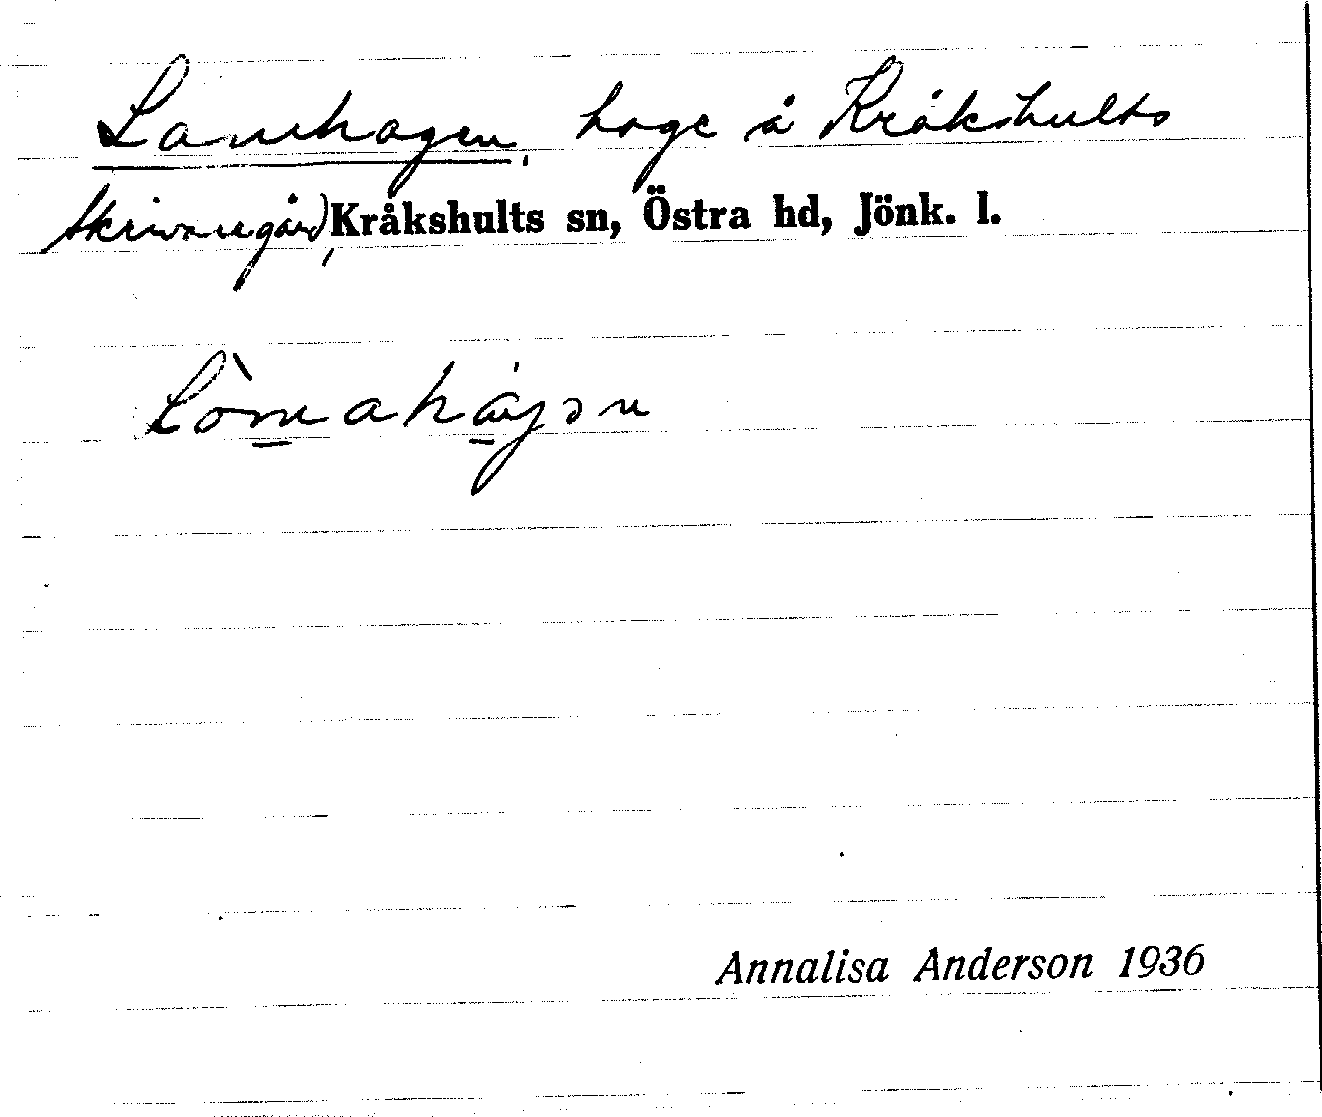 Lamhagen, hage å Kråkshults
Skrivaregård, Kråkshults sn, Östra hd, Jönk. l.
Annalisa Anderson 1936